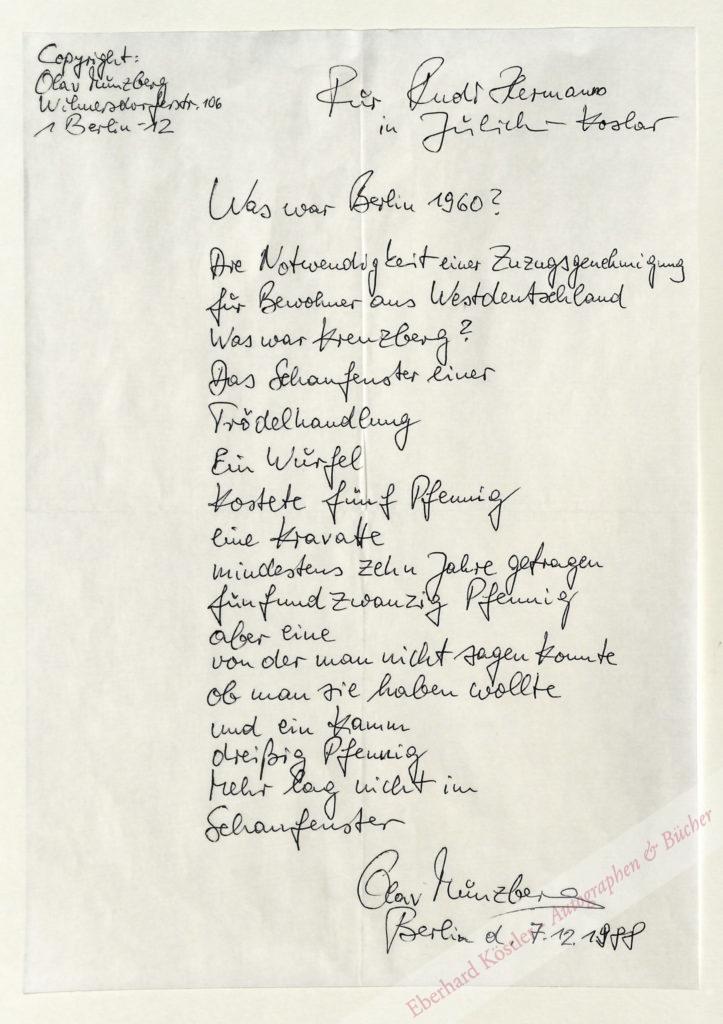 Copyright:
Olav Münzberg
Wilmersdorferstr. 106
1 Berlin-12
Für Rudi Hermanns
in Jülich - Koslar
Was war Berlin 1960?
Die Notwendigkeit einer Zuzugsgenehmigung
für Bewohner aus Westdeutschland
Was war Kreuzberg?
Das Schaufenster einer
Trödelhandlung
Ein Würfel
kostete fünf Pfennig
eine Kravatte
mindestens zehn Jahre getragen
fünfundzwanzig Pfennig
aber eine
von der man nicht sagen konnte
ob man sie haben wollte
und ein Kamm
dreißig Pfennig
Mehr lag nicht im
Schaufenster
Olav Münzberg
Berlin d. 7.12.1988
Eberhard Köstler Autographen & Bücher